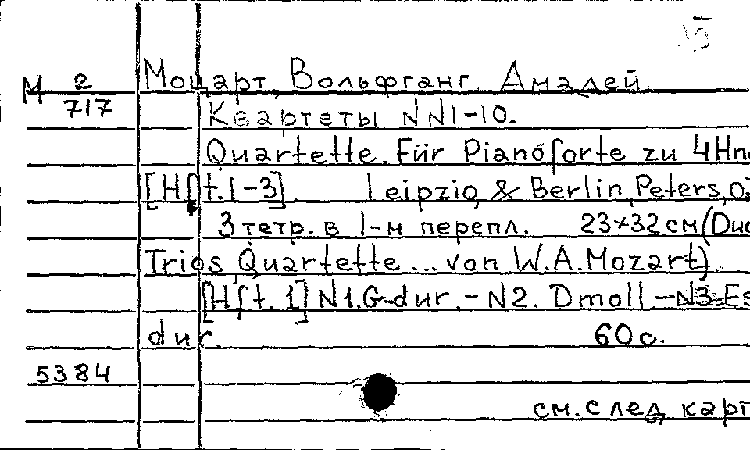 М 2
717
Моцарт, Вольфганг Амадей
Квартеты NN1-10.
Quartette. Für Pianoforte zu 4Hn
[Hft. 1-3] Leipzig & Berlin, Peters,
3 тетр. в 1-м перепл. 23×32 см (Duo
Trios, Quartette... von W.A.Mozart)
[Hft. 1] N1.G-dur. - N2. Dmoll - N3-Es
dur. 60 с.
5384
см. след. карт